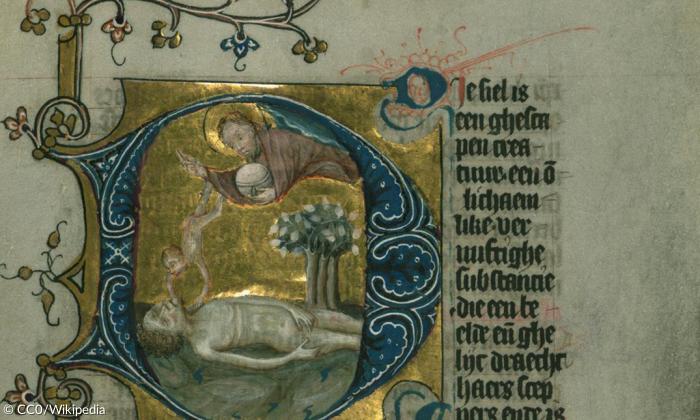 Die siel is
een ghesca
pen crea
tuur. een ō
lichaem
like. ver
nuftighe
substancie
die een be
elde en̄ ghe
lijc draecht
haers scep
pers ende is
© CC0/Wikipedia